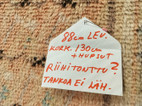 88cm LEV.
KORK. 130cm
+ HUPSUT
RIINITONTTU?
TANKOA EI LÄH.